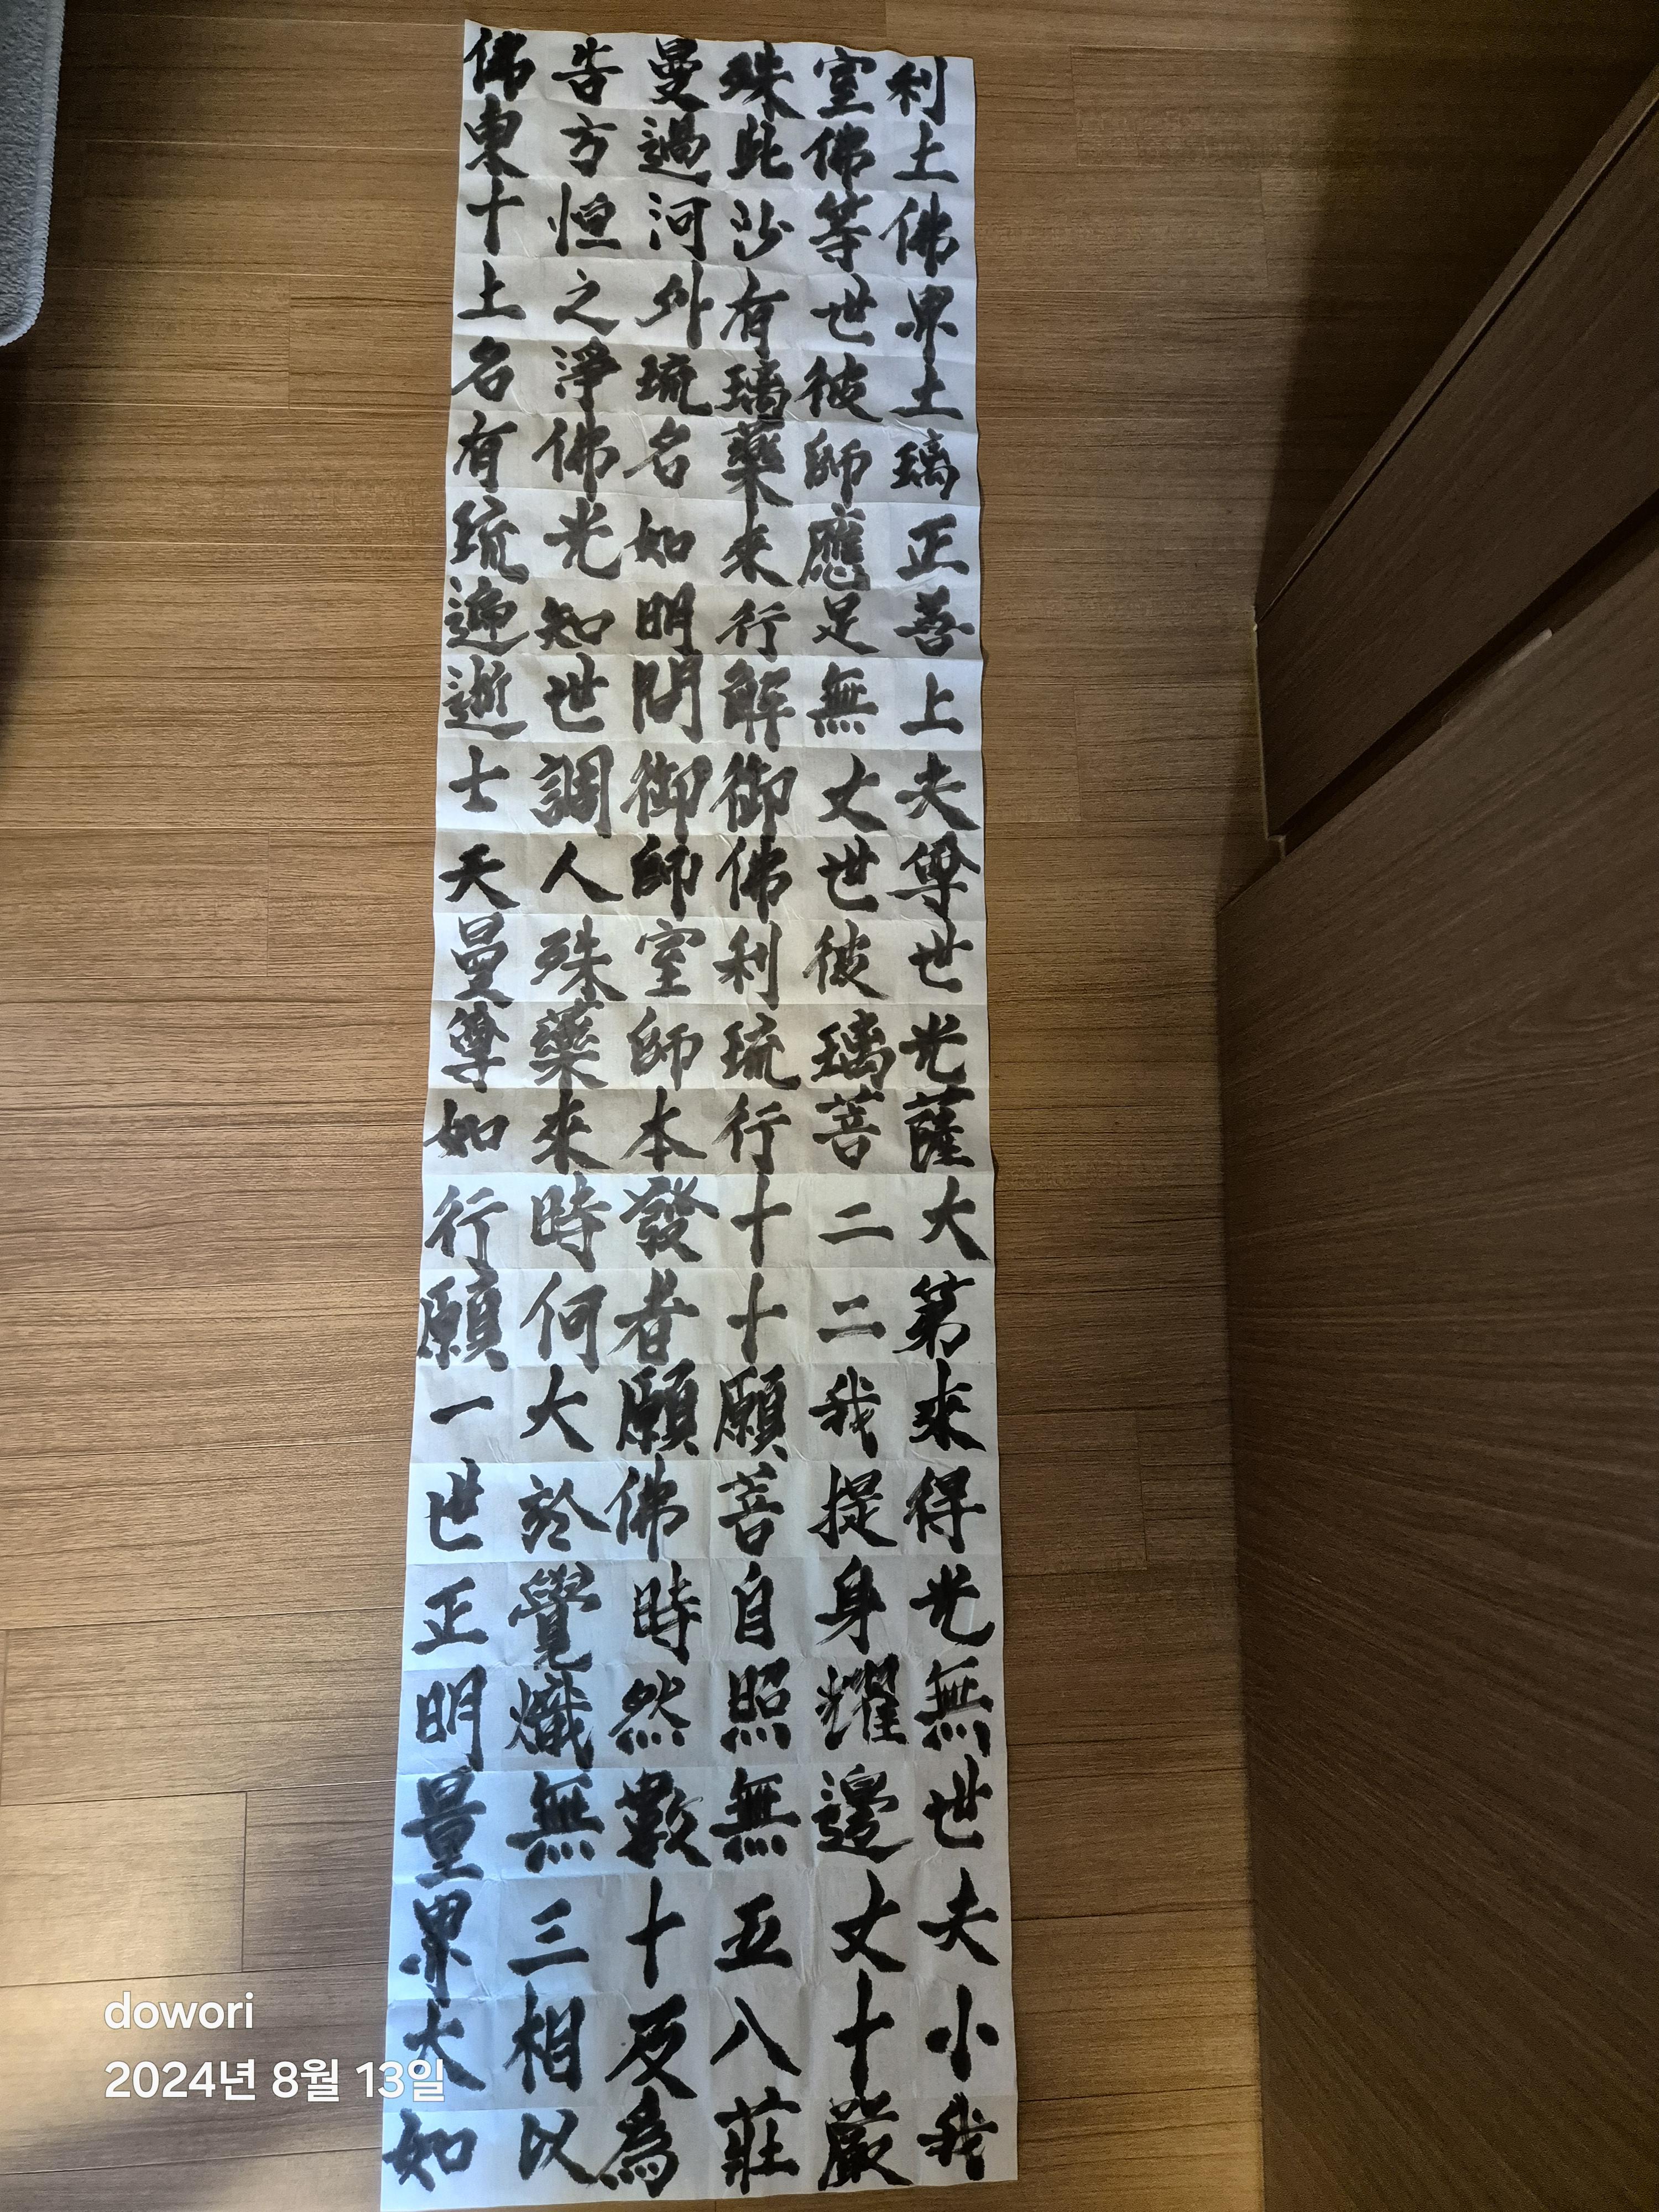 佛告曼殊室利
東方過此佛土
十恒河沙等佛
土之外有世界
名淨琉璃彼土
有佛名藥師璃
琉光如來應正
遍知明行足善
逝世間解無上
士調御御丈夫
天人師佛世尊
曼殊室利彼世
尊藥師琉璃光
如來本行菩薩
行時發十二大
願何者十二第
一大願願我來
世於佛菩提得
正覺時自身光
明熾然照耀無
量無數無邊世
界三十五丈夫
大相及八十小
如以爲莊嚴我
dowori
2024년 8월 13일